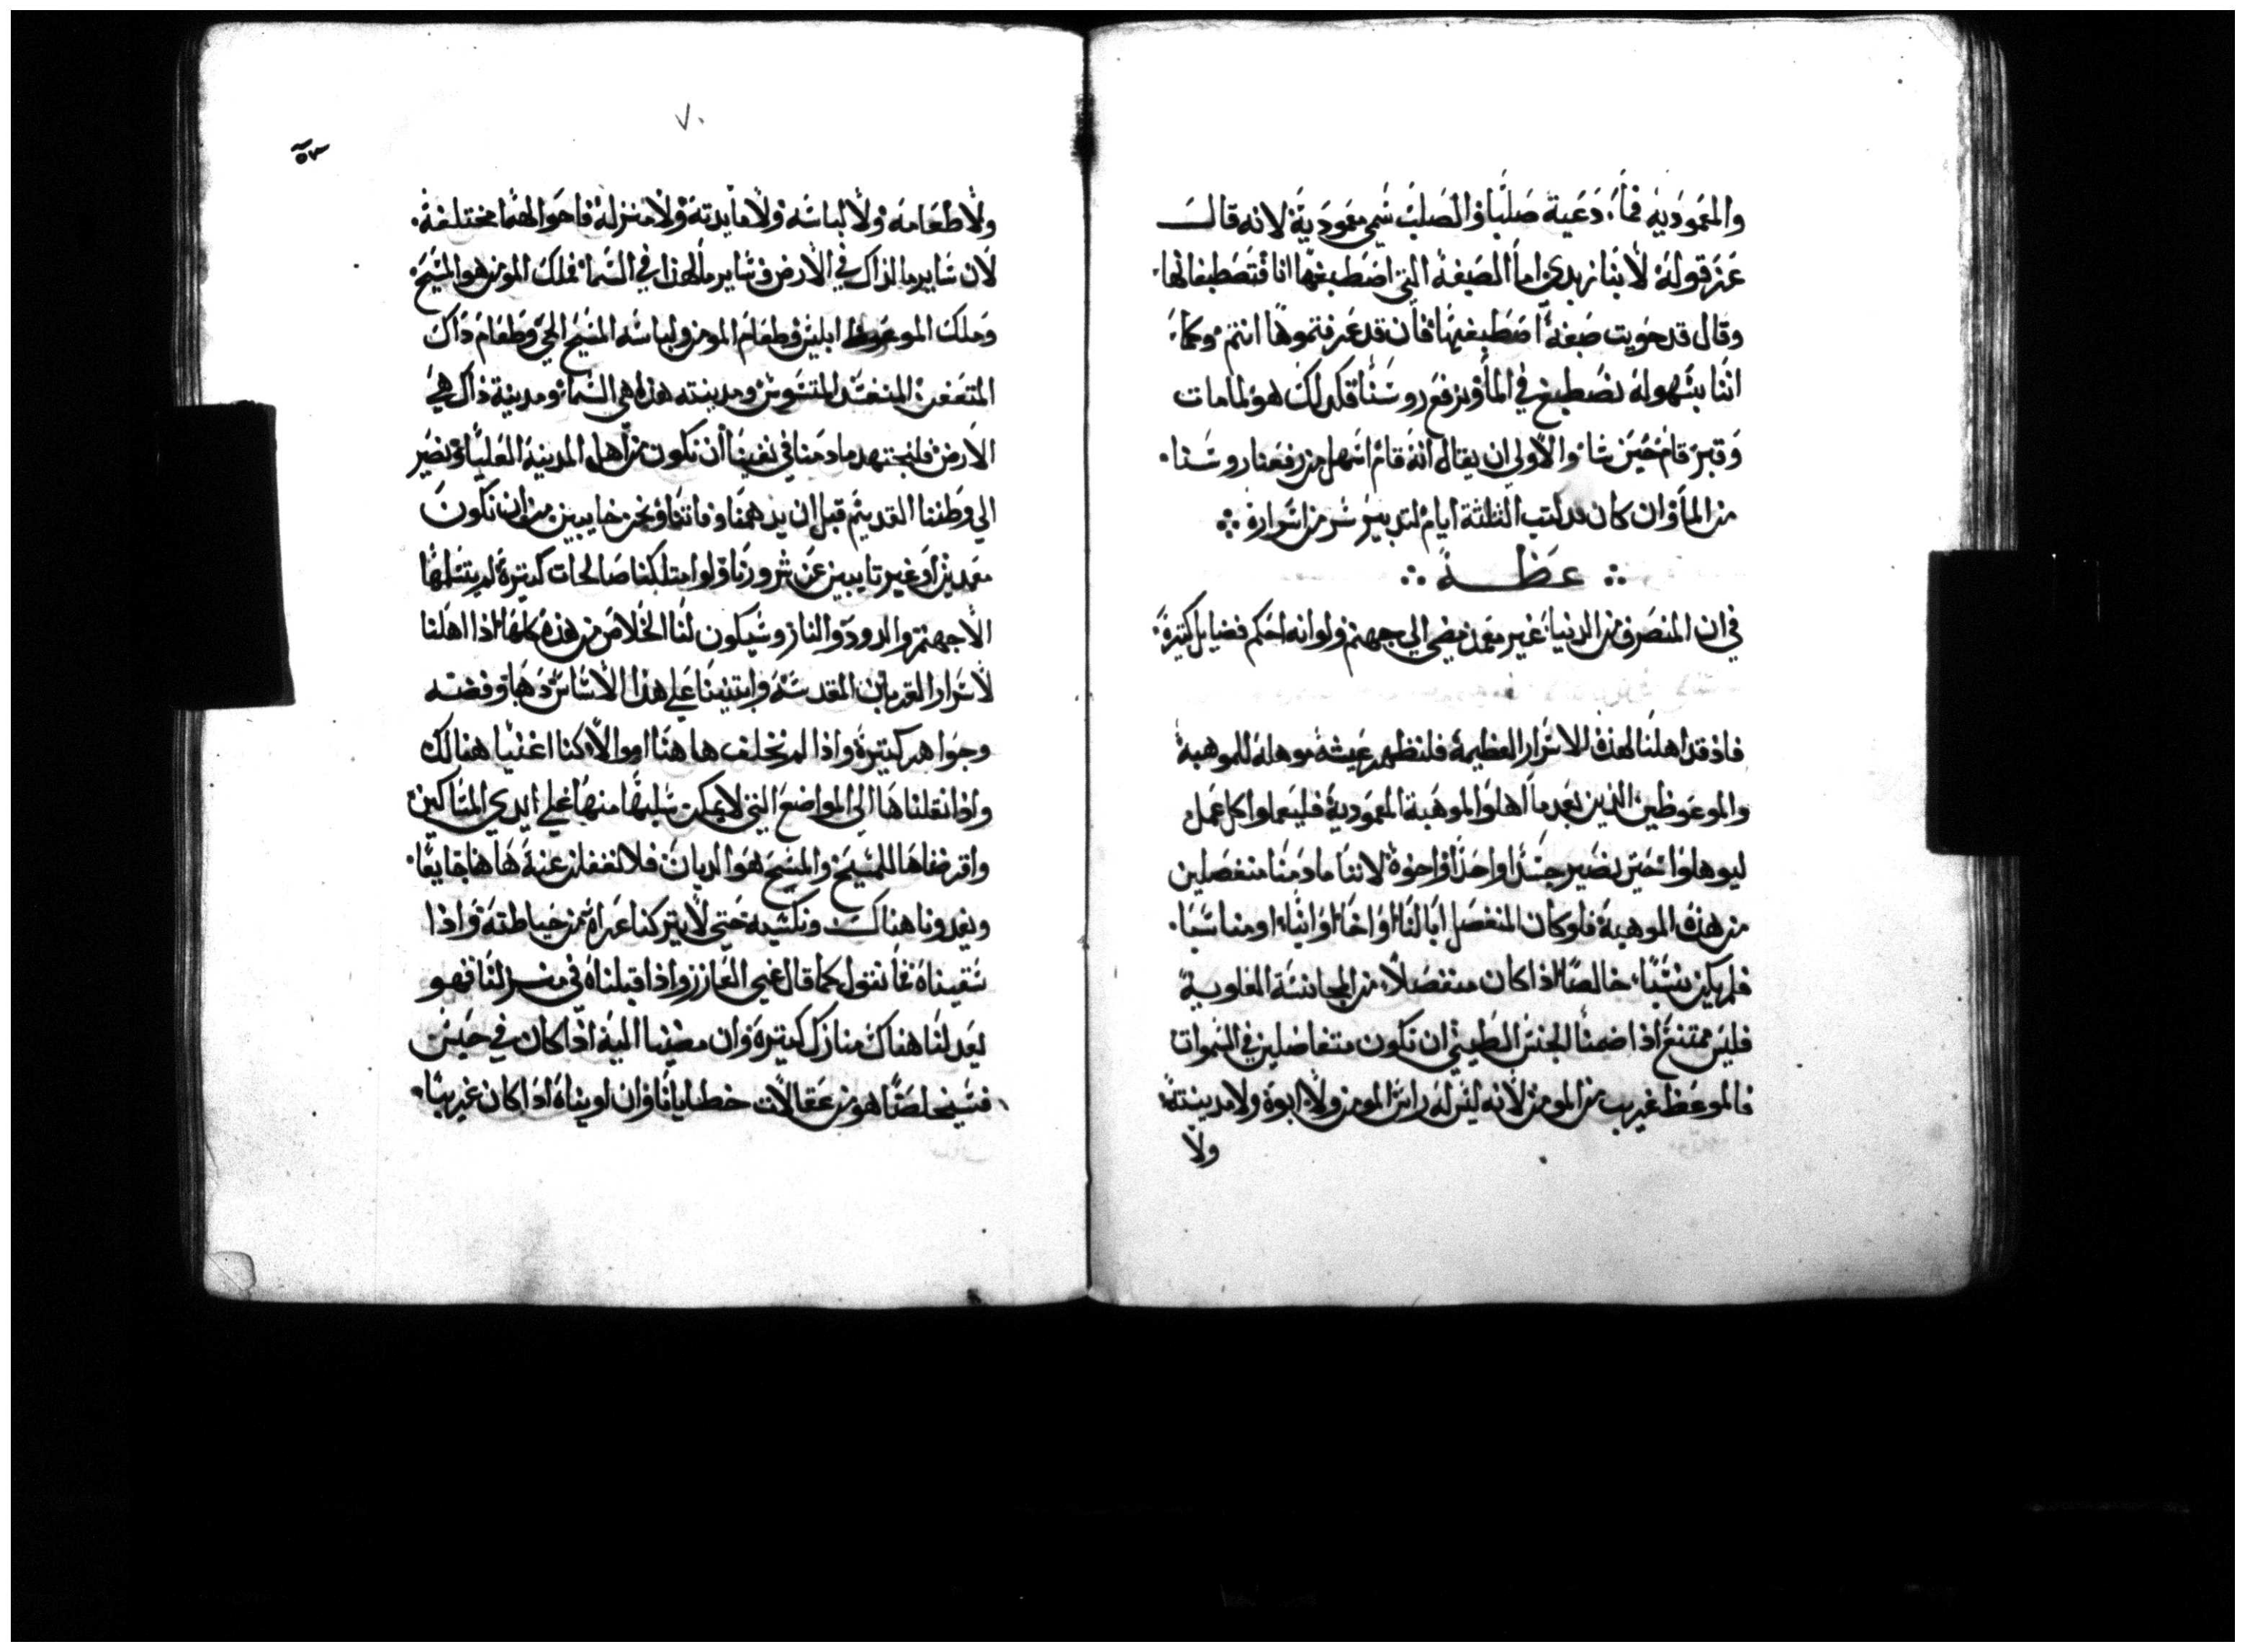 والمعموديه فما، دعية صلبا والصلب سمي معمودية لانه قال
عن قوله لابنا زبدي اما الصبغة التي اصطبغها انا فتصطبغانها
وقال قد حويت صبغة اصطبغها فان قد عرفتموها انتم وكما،
اننا بسهولة نصطبغ في الما ونرفع روسنا فكدلك هو لما مات
وقبر قام حين شا والاولى ان يقال انه قام اسهل من رفعنا روسنا
من الما وان كان الثلثة ايام لتدبير سر من اسراره
عظة
في ان المنصرف من الدنيا غير معمد يمضي الي جهنم ولو انه احكم فضايل كتيرة
فاذ قد اهلنا لهذه الاسرار العظيمة فلنظهر عيشة موهلة للموهبة
والموعوظين الذين بعد ما اهلوا لموهبة المعمودية فليعملوا كل عمل
ليوهلوا حتى نصير جسدا واحدا واخوة لاننا ما دمنا منفصلين
من هذه الموهبة فلو كان المنفصل ابا لنا او اخا او ابنا، او مناسبا
فلم يكن نسبا، خالصا اذا كان منفصلا، من المجانسة العلوية
فليس ممتنع اذا ضمنا الجنس الطيني ان نكون متفاصلين في السموات
فالموعظ غريب من المومن لانه ليس له راس المومن ولا ابوة ولا مدينته
ولا
٧٠
٥٣
ولا طعامه ولا لباسه ولا مايدته ولا منزله فاحوالهما مختلفة
لان ساير ما لذاك في الارض وساير ما لهذا في السما فملك المومن هو المسيح
وملك الموعوظ ابليس وطعام المومن ولباسه المسيح الحي وطعام داك
المتعفن المنفسد المتسوس ومدينته هذه هي السما ومدينة ذاك هي
الارض فلنجتهد ما دمنا في نفسنا ان نكون من اهل المدينة العليا ونصير
الي وطننا القديم قبل ان يدهمنا وفاتنا ونحن خايبين من ان نكون
معمدين او غير تايبين عن شرورنا ولو امتلكنا صالحات كتيرة لم يتسلمها
الا جهنم والدود والنار وسيكون لنا الخلاص من هذه كلها اذا اهلنا
لاسرار القربان المقدسة وابتنينا علي هذا الاساس دهبا وفضه
وجواهر كتيرة واذا لم نخلف ها هنا اموالا، كنا اغنيا هنالك
واذا نقلناها الى المواضع التي لا يمكن سلبها منها علي ايدي المساكين
واقرضناها للمسيح والمسيح هو الديان فلا نغفلن عنه ها هنا جايعا
ويغدونا هناك ونكسيه حتى لا يتركنا عراة من حياطته واذا
سقيناه نقول كما قال غني العازر واذا قبلناه في منزلنا فهو
يعد لنا هناك منازل كتيرة وان مضينا اليه اذا كان في حبس
فسيخلصنا هو من عقالات خطايانا وان اويناه اذا كان غريبا